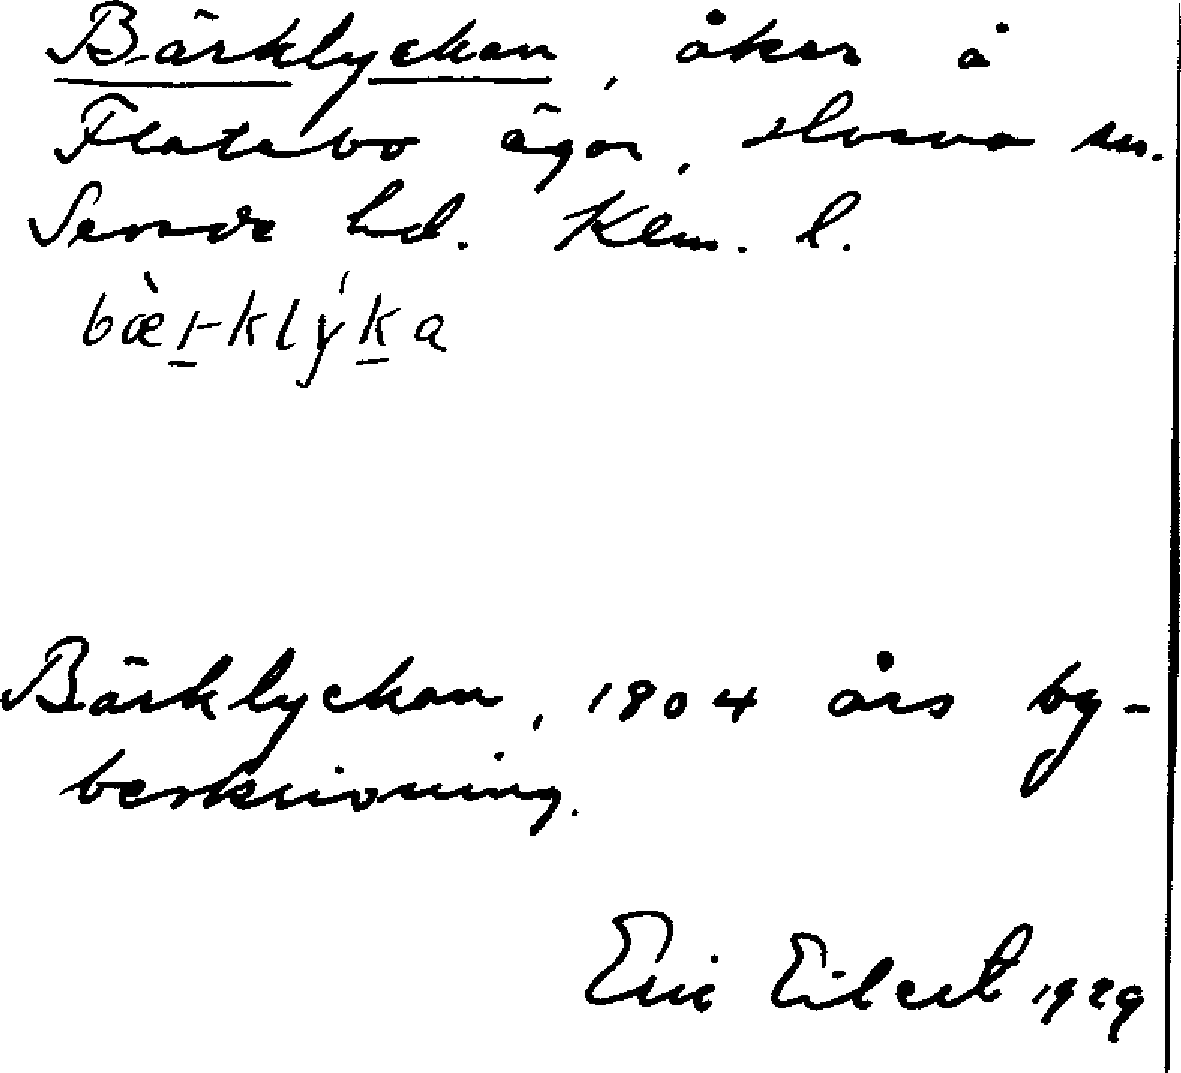 Bärklyckan, åker å
Flatebo ägor, Slorva sn.
Sevede hd. Klm. l.
bæ̀r-klýka
Bärklyckan, 1904 års by-
beskrivning.
Eric Eilert 1929